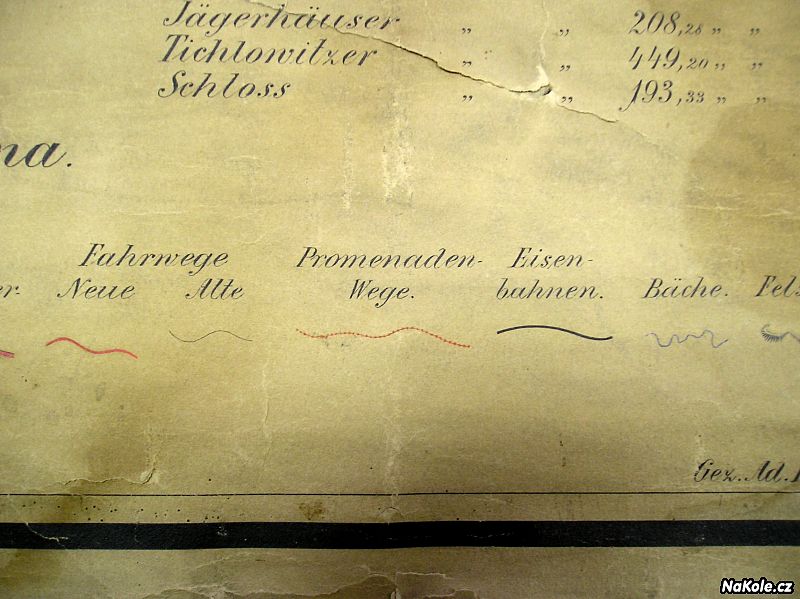 Jägerhäuser „ „ 208,28 „ „
Tichlowitzer „ „ 449,20 „ „
Schloss „ „ 193,33 „ „
na.
Fahrwege Promenaden- Eisen-
er- Neue Alte Wege. bahnen. Bäche. Fels
Gez. Ad.
NaKole.cz